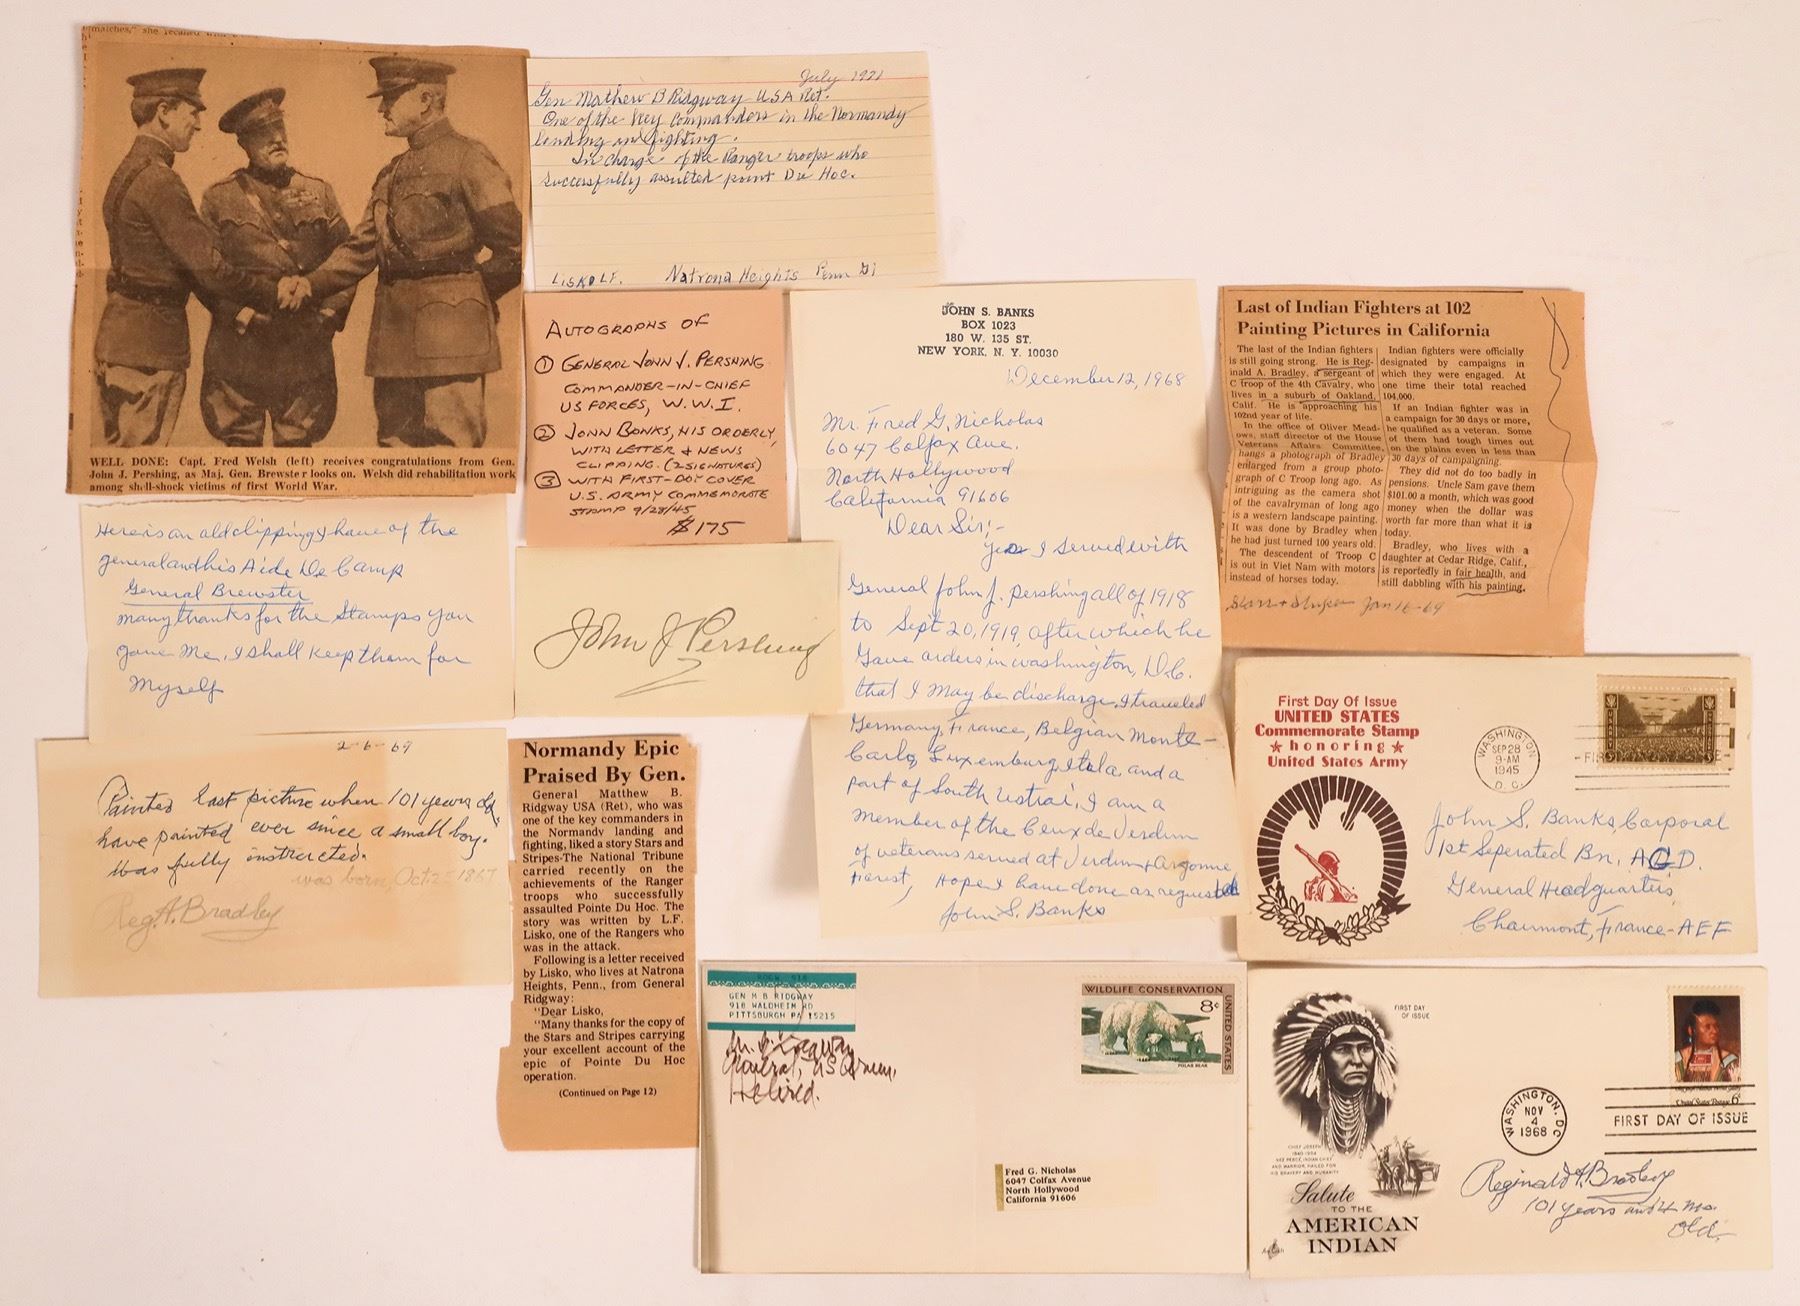 matches," she recalled
WELL DONE: Capt. Fred Welsh (left) receives congratulations from Gen.
John J. Pershing, as Maj. Gen. Brewster looks on. Welsh did rehabilitation work
among shell-shock victims of first World War.
July 1971
Gen Mathew B Ridgway USA Ret.
One of the key commanders in the Normandy
landing and fighting.
In charge of the Ranger troops who
successfully assulted point Du Hoc.
LISKO LF. Natrona Heights Penn
AUTOGRAPHS OF
① GENERAL JOHN J. PERSHING
COMMANDER-IN-CHIEF
US FORCES, W.W.I.
② JOHN BANKS, HIS ORDERLY,
WITH LETTER & NEWS
CLIPPING. (2 SIGNATURES)
③ WITH FIRST-DAY COVER
U.S. ARMY COMMEMORATE
STAMP 9/28/45
$175
Here is an old clipping I have of the
general and his Aide De Camp
General Brewster
many thanks for the Stamps you
gave Me, I shall keep them for
Myself
John J Pershing
2-6-69
Painted last picture when 101 years old.
have painted ever since a small boy.
Was fully instructed.
was born, Oct. 25 1867
Reg. A. Bradley
Normandy Epic
Praised By Gen.
General Matthew B.
Ridgway USA (Ret), who was
one of the key commanders in
the Normandy landing and
fighting, liked a story Stars and
Stripes-The National Tribune
carried recently on the
achievements of the Ranger
troops who successfully
assaulted Pointe Du Hoc. The
story was written by L.F.
Lisko, one of the Rangers who
was in the attack.
Following is a letter received
by Lisko, who lives at Natrona
Heights, Penn., from General
Ridgway:
"Dear Lisko,
"Many thanks for the copy of
the Stars and Stripes carrying
your excellent account of the
epic of Pointe Du Hoc
operation.
(Continued on Page 12)
JOHN S. BANKS
BOX 1023
180 W. 135 ST.
NEW YORK, N. Y. 10030
December 12, 1968
Mr. Fred G. Nicholas
6047 Colfax Ave.
North Hollywood
California 91606
Dear Sir;-
Yes I served with
General John J. Pershing all of 1918
to Sept 20, 1919, after which he
Gave orders in Washington, D.C.
that I may be discharge, I traveled
Germany, France, Belgian Monte-
Carlo, Luxemburg, Itala, and a
part of South Ustrai, I am a
member of the Ceux de Verdun
of veterans served at Verdun + Argonne
Forest, Hope I have done as requested
John S. Banks
Last of Indian Fighters at 102
Painting Pictures in California
The last of the Indian fighters
is still going strong. He is Reg-
inald A. Bradley, a sergeant of
C troop of the 4th Cavalry, who
lives in a suburb of Oakland,
Calif. He is approaching his
102nd year of life.
In the office of Oliver Mead-
ows, staff director of the House
Veterans Affairs Committee,
hangs a photograph of Bradley
enlarged from a group photo-
graph of C Troop long ago. As
intriguing as the camera shot
of the cavalryman of long ago
is a western landscape painting.
It was done by Bradley when
he had just turned 100 years old.
The descendent of Troop C
is out in Viet Nam with motors
instead of horses today.
Indian fighters were officially
designated by campaigns in
which they were engaged. At
one time their total reached
104,000.
If an Indian fighter was in
a campaign for 30 days or more,
he qualified as a veteran. Some
of them had tough times out
on the plains even in less than
30 days of campaigning.
They did not do too badly in
pensions. Uncle Sam gave them
$101.00 a month, which was good
money when the dollar was
worth far more than what it is
today.
Bradley, who lives with a
daughter at Cedar Ridge, Calif.,
is reportedly in fair health, and
still dabbling with his painting.
Jan 16-69
First Day Of Issue
UNITED STATES
Commemorate Stamp
★ honoring ★
United States Army
WASHINGTON
SEP 28
9-AM
1945
D. C.
John S. Banks, Corporal
1st Seperated Bn, AGD.
General Headquarters,
Chaumont, France-AEF
GEN M B RIDGWAY
918 WALDHEIM RD
PITTSBURGH PA 15215
M. B. Ridgway
General, US Army,
Retired.
WILDLIFE CONSERVATION
8¢
UNITED STATES
POLAR BEAR
Fred G. Nicholas
6047 Colfax Avenue
North Hollywood
California 91606
FIRST DAY
OF ISSUE
CHIEF JOSEPH
1840-1904
NEZ PERCE INDIAN CHIEF
AND WARRIOR, HAILED FOR
HIS BRAVERY AND HUMANITY
Salute
TO THE
AMERICAN
INDIAN
United States Postage 6¢
WASHINGTON, DC
NOV
4
1968
FIRST DAY OF ISSUE
Reginald A. Bradley
101 years and 4 mo.
old.